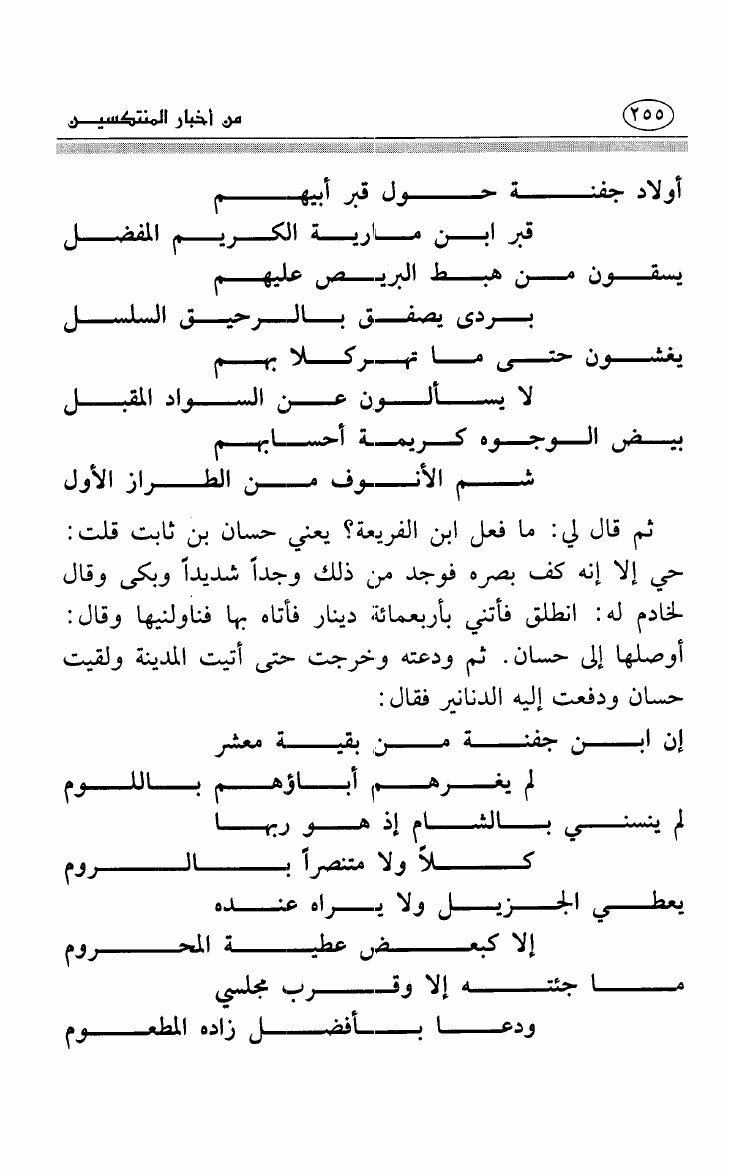 من أخبار المنتكسين ٢٥٥
أولاد جفنة حول قبر أبيهم
قبر ابن مارية الكريم المفضل
يسقون من هبط البريص عليهم
بردى يصفق بالرحيق السلسل
يغشون حتى ما تهركلا بهم
لا يسألون عن السواد المقبل
بيض الوجوه كريمة أحسابهم
شم الأنوف من الطراز الأول
ثم قال لي: ما فعل ابن الفريعة؟ يعني حسان بن ثابت قلت:
حي إلا إنه كف بصره فوجد من ذلك وجداً شديداً وبكى وقال
لخادم له: انطلق فأتني بأربعمائة دينار فأتاه بها فناولنيها وقال:
أوصلها إلى حسان. ثم ودعته وخرجت حتى أتيت المدينة ولقيت
حسان ودفعت إليه الدنانير فقال:
إن ابن جفنة من بقية معشر
لم يغرهم أباؤهم باللوم
لم ينسني بالشام إذ هو ربها
كلاً ولا متنصراً بالروم
يعطي الجزيل ولا يراه عنده
إلا كبعض عطية المحروم
ما جئته إلا وقرب مجلسي
ودعا بأفضل زاده المطعوم